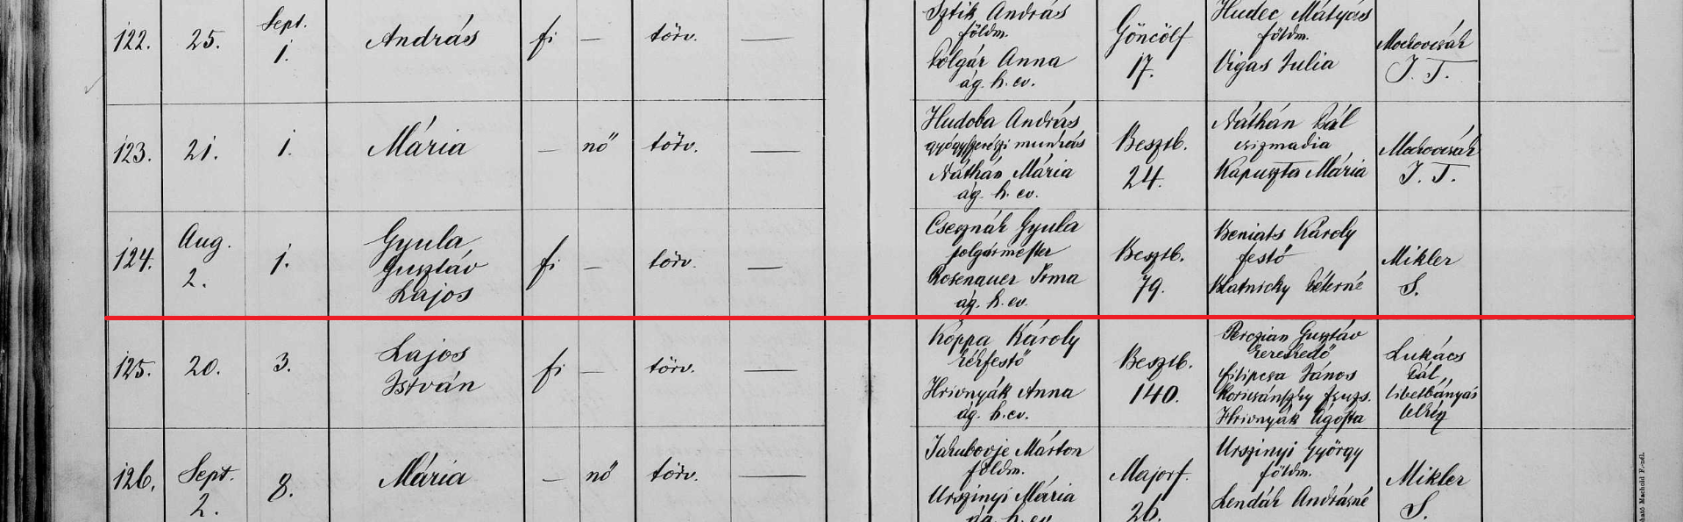 122.
25.
Sept.
1.
András
fi
—
törv.
—
Iztik András
földm.
Polgár Anna
ág. h. ev.
Göncölf
17.
Hudec Mátyás
földm.
Vigas Julia
Modrovcsák
J. T.
123.
21.
1.
Mária
—
nő
törv.
Hudoba András
gyógyszerészi munkás
Náthán Mária
ág. h. ev.
Besztb.
24.
Náthán Pál
csizmadia
Kapuszta Mária
Modrovcsák
J. T.
124.
Aug.
2.
1.
Gyula
Gusztáv
Lajos
fi
—
törv.
—
Csesznák Gyula
polgármester
Rosenauer Irma
ág. h. ev.
Besztb.
79.
Beniats Károly
festő
Klatnicky Péterné
Mikler
S.
125.
20.
3.
Lajos
István
fi
—
törv.
—
Koppa Károly
kékfestő
Hrivnyák Anna
ág. h. ev.
Besztb.
140.
Perozian Gusztáv
kereskedő
Filipcsa János
Hrivnyák Ágosta
Lukács
Pál
libetbányai
lelkész
126.
Sept.
2.
8.
Mária
—
nő
törv.
—
Jakubovje Márton
földm.
Urszinyi Mária
ág. h. ev.
Majorf.
26.
Urszinyi György
földm.
Lendár Andrásné
Mikler
S.